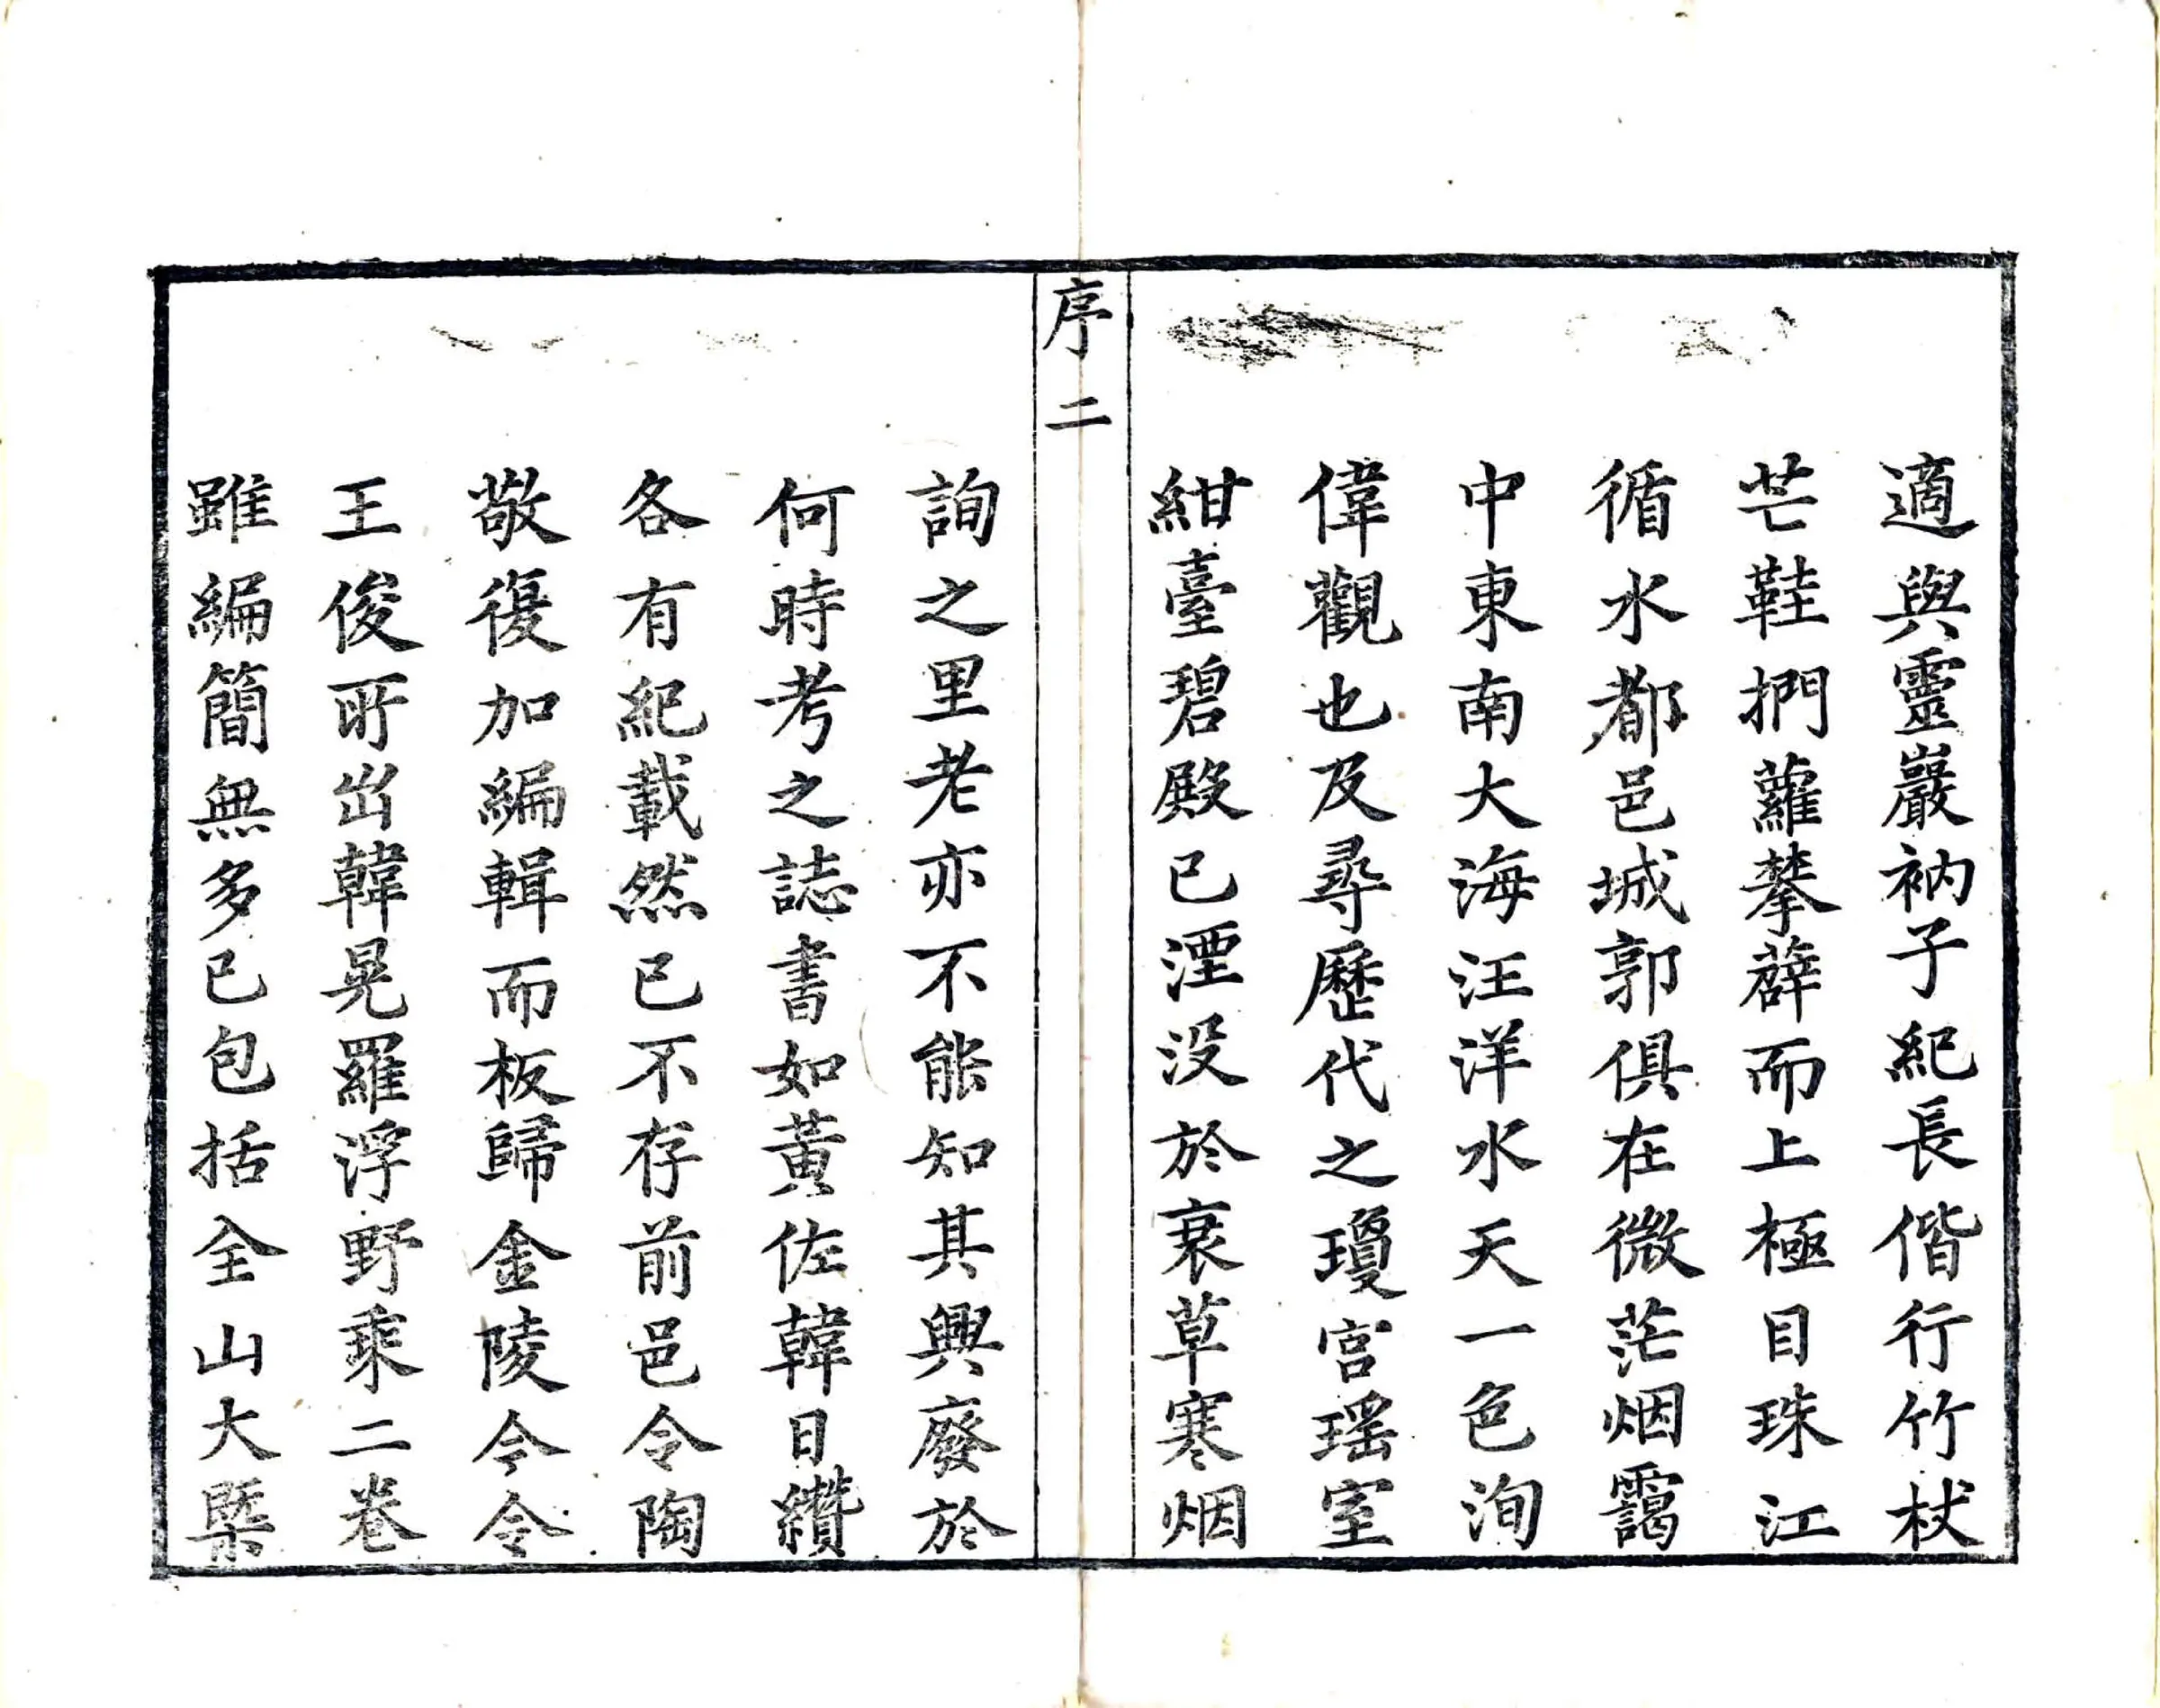 適與靈巖衲子紀長偕行竹杖
芒鞋捫蘿攀薜而上極目珠江
循水都邑城郭俱在微茫烟靄
中東南大海汪洋水天一色洵
偉觀也及尋歷代之瓊宮瑶室
紺臺碧殿已湮没於衰草寒烟
序二
詢之里老亦不能知其興廢於
何時考之誌書如黃佐韓日纘
各有紀載然已不存前邑令陶
敬復加編輯而板歸金陵今令
王俊所出韓晃羅浮野乘二卷
雖編簡無多已包括全山大槩